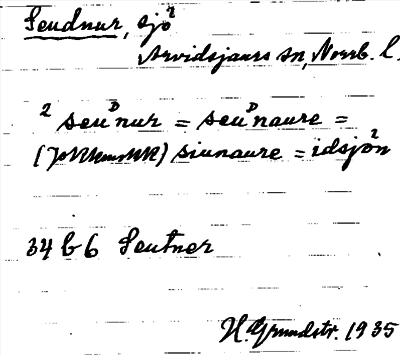 Seudnur, sjö²
Arvidsjaurs sn, Norrb. l.
² seuᴰnur = seuᴰnaure =
siunaure = idsjön²
34 b 6 Seutner
H. Grundstr. 1935